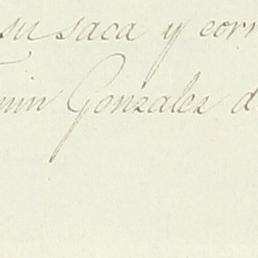 su saca y corr
min Gonzalez d